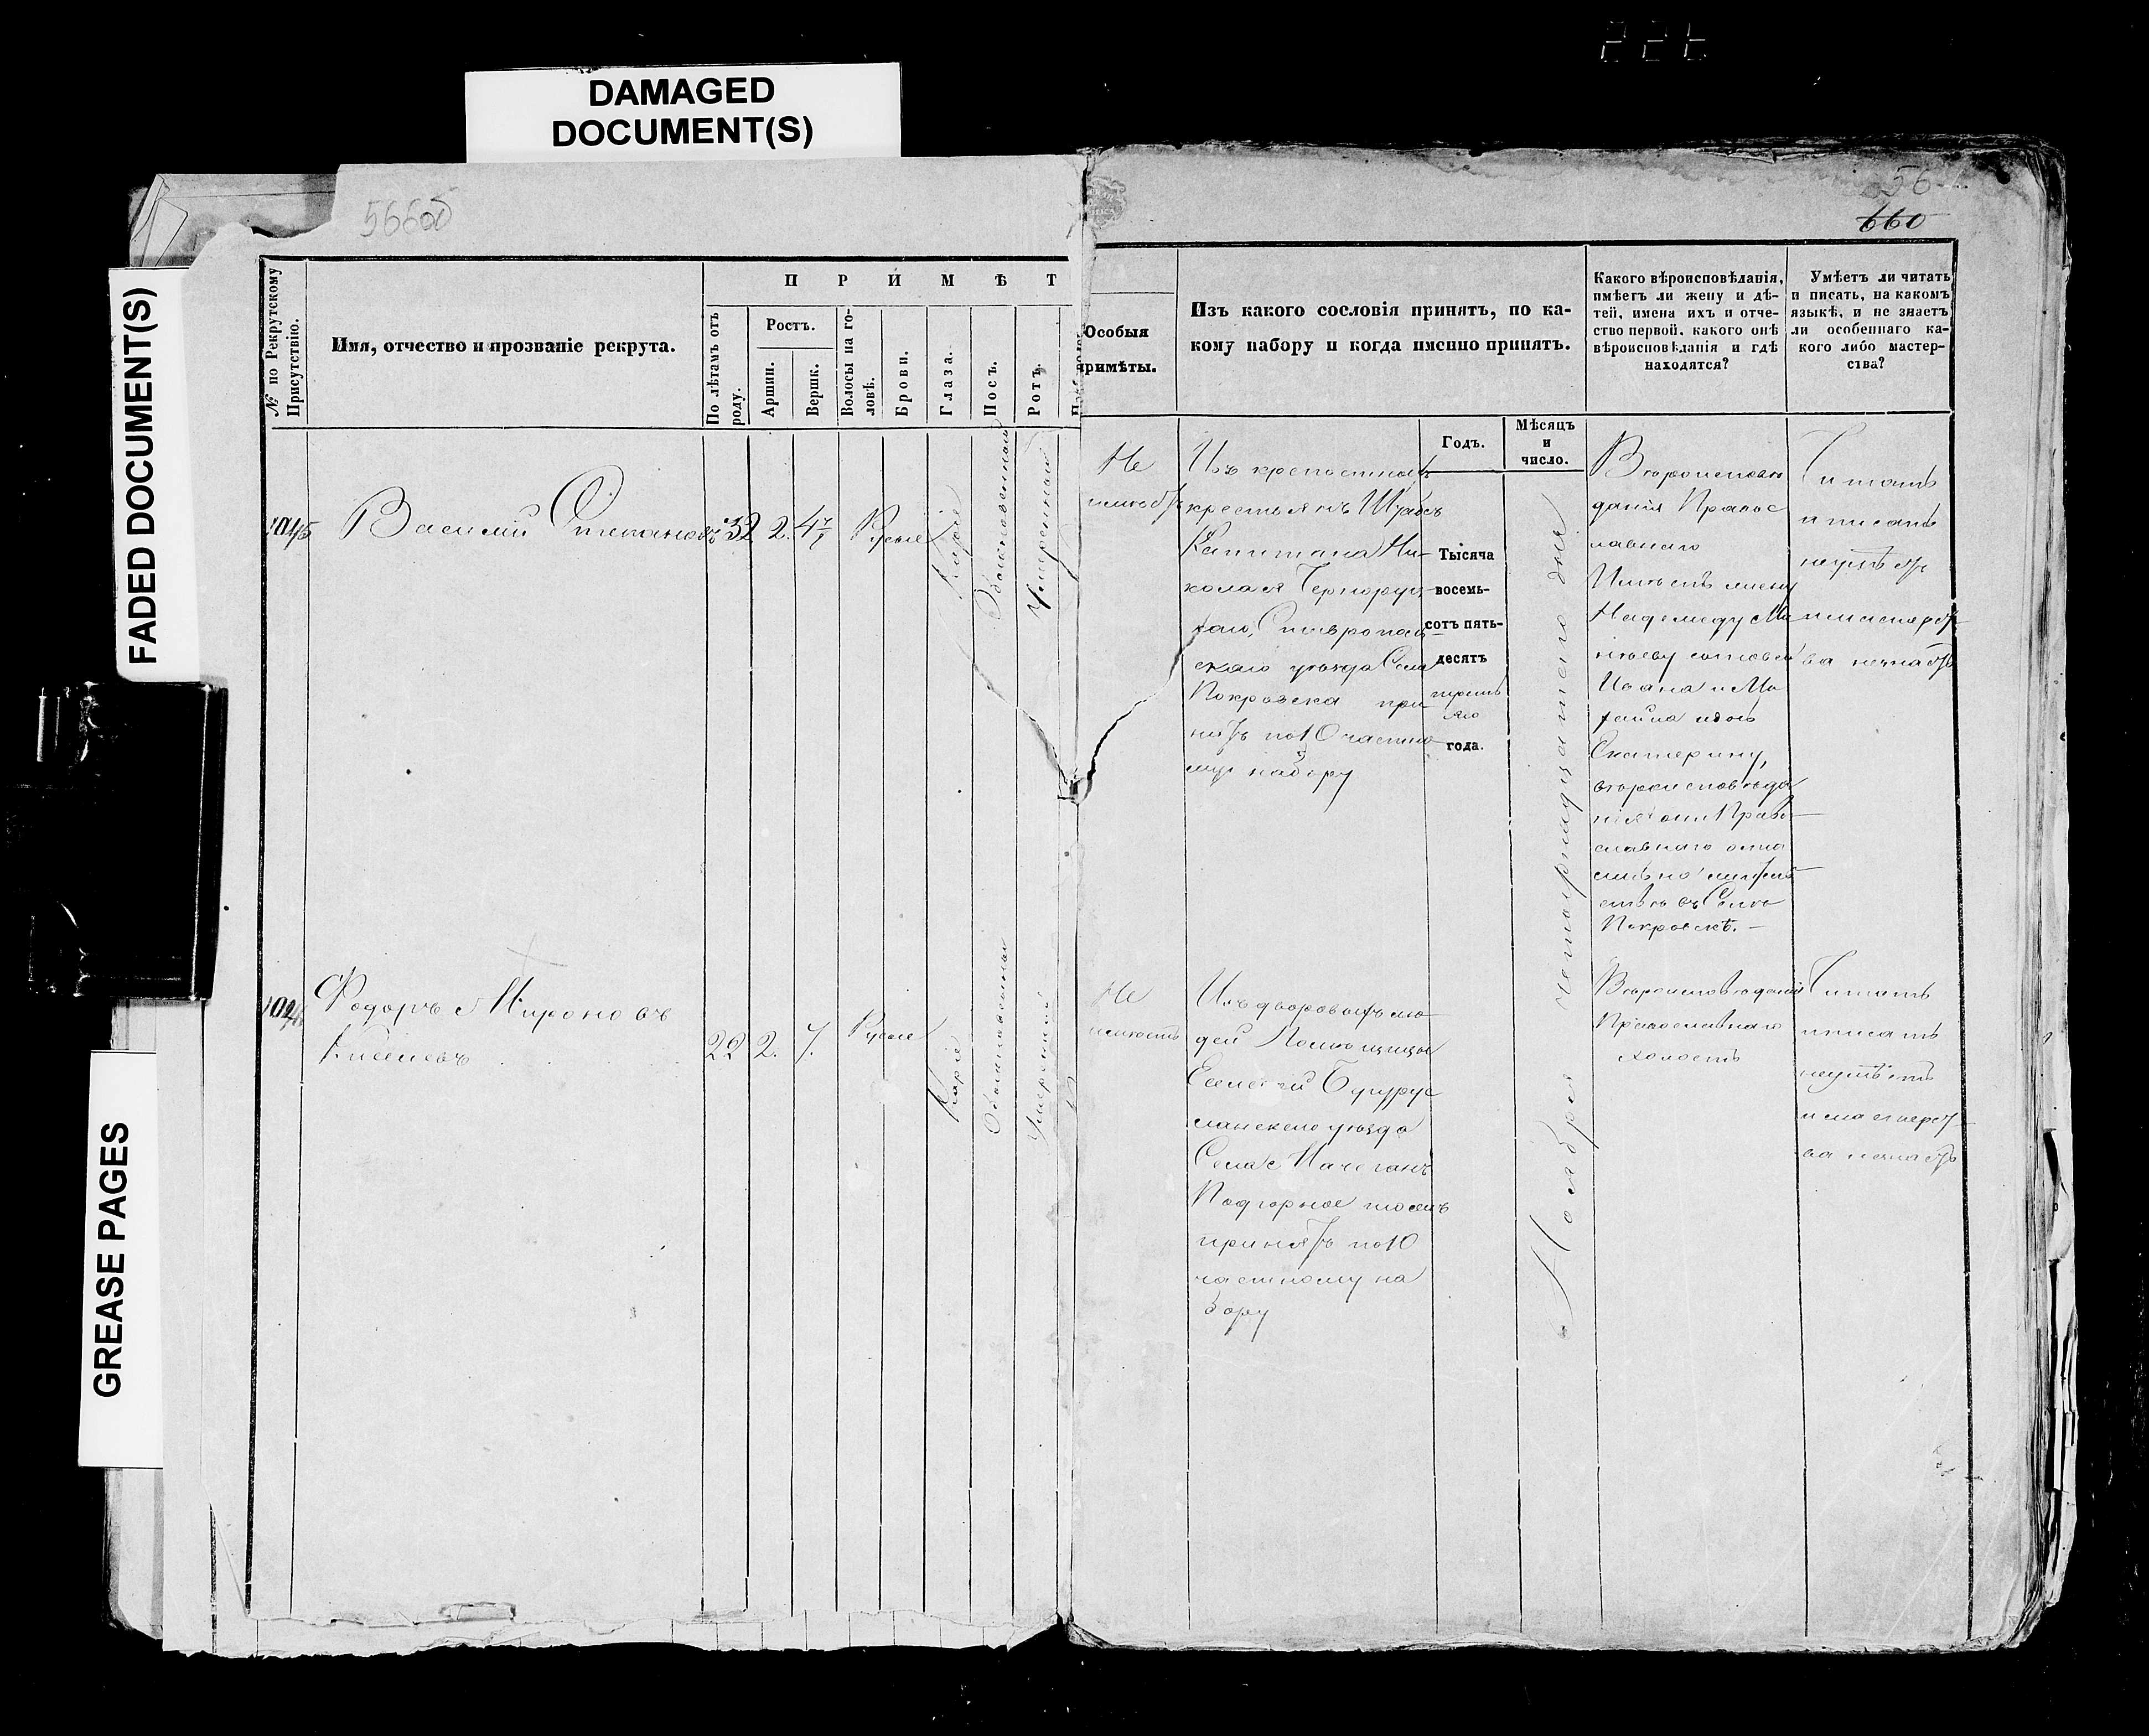 DAMAGED
DOCUMENT(S)
FADED DOCUMENT(S)
GREASE PAGES
56
660
№ по Рекрутскому
Присутствію.
Имя, отчество и прозваніе рекрута.
П Р И М Ѣ Т
По лѣтамъ отъ
роду.
Ростъ.
Аршин.
Вершк.
Волосы на го-
ловѣ.
Брови.
Глаза.
Носъ.
Ротъ.
Особыя
примѣты.
Изъ какого сословія принятъ, по ка-
кому набору и когда именно принятъ.
Годъ.
Мѣсяцъ
и
число.
Какого вѣроисповѣданія,
имѣетъ ли жену и дѣ-
тей, имена ихъ и отче-
ство первой, какого онѣ
вѣроисповѣданія и гдѣ
находятся?
Умѣетъ ли читать
и писать, на какомъ
языкѣ, и не знаетъ
ли особеннаго ка-
кого либо мастер-
ства?
1045
Василий Степановъ
32
2.
Русые
Каріе
Обыкновенный
Умеренный
Не
имеетъ
Изъ крепостныхъ
крестьянъ Штабсъ
Капитана Ни-
колая
Ставрополь-
скаго уезда Села
Покровска при-
нятъ по 10 частно-
му набору
Тысяча
восемь-
сотъ пять-
десятъ
третьяго
года.
Ноября четырнадцатаго дня
Вероисповѣ
данія Правос
лавнаго
Имѣетъ жену
сыновей
Ивана и Ми
хайла дочь
Екатерину,
вѣроисповѣда
нія они Право-
славнаго
въ Селѣ
Покровскѣ. –
Читать
и писать
неумѣетъ
и мастерст-
ва незнаетъ
1046
Федоръ Мироновъ
22
2.
7.
Русые
Каріе
Обыкновенный
Умеренный
Не
имеетъ
Изъ дворовыхъ лю
дей Помещицы
Бугурус
ланскаго уезда
Села
Подгорное тожъ
принятъ по 10
частному на
бору
Вероисповѣданія
Православнаго
холостъ
Читать
и писать
неумѣетъ
и мастерст-
ва незнаетъ